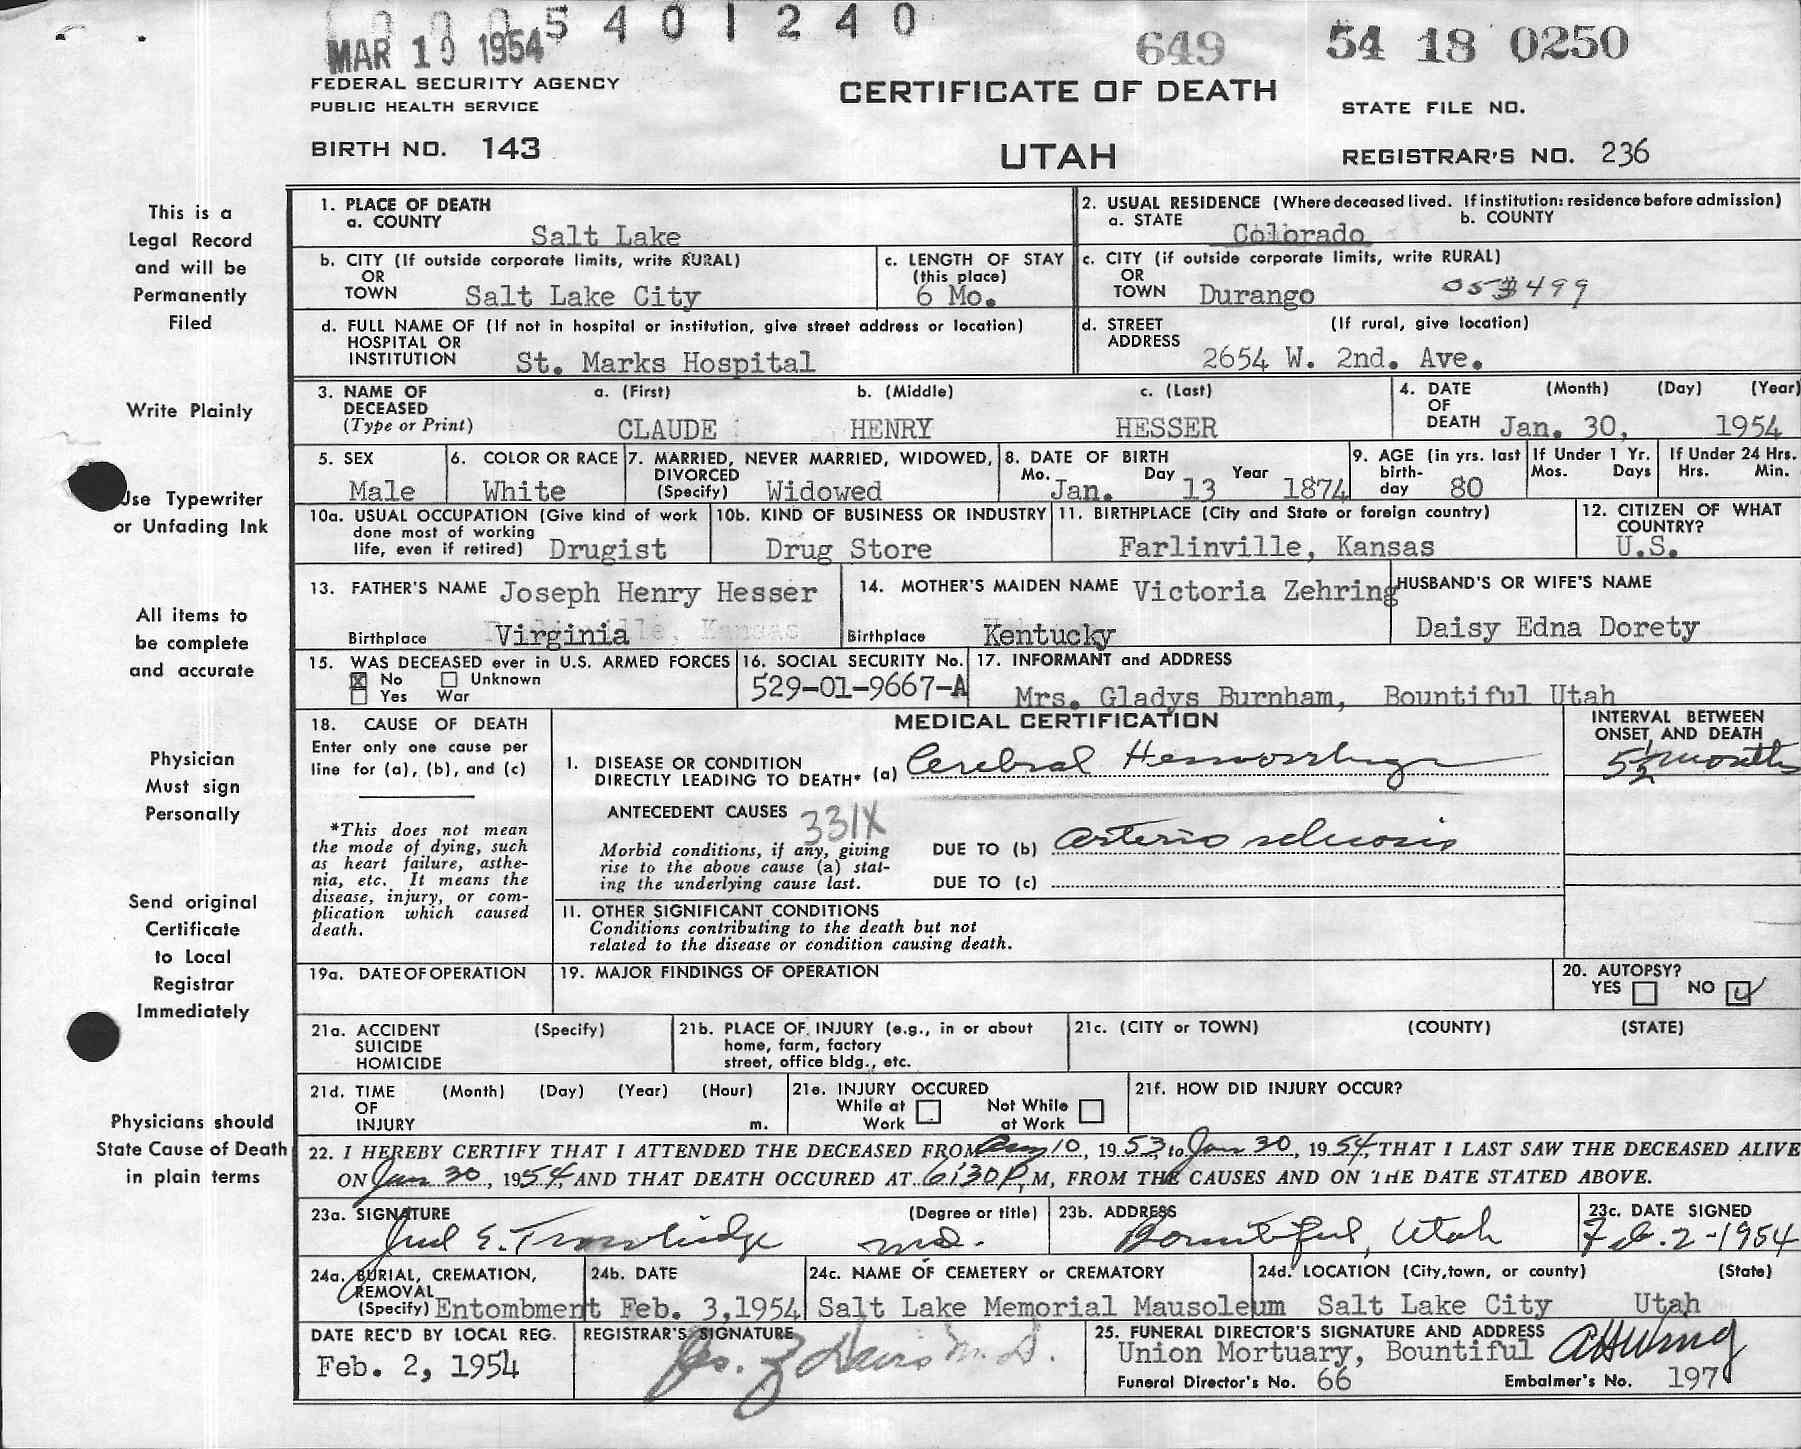 0 0 0 5 4 0 1 2 4 0
MAR 10 1954
649
54 18 0250
FEDERAL SECURITY AGENCY
PUBLIC HEALTH SERVICE
CERTIFICATE OF DEATH
STATE FILE NO.
BIRTH NO. 143
UTAH
REGISTRAR'S NO. 236
This is a
Legal Record
and will be
Permanently
Filed
Write Plainly
Use Typewriter
or Unfading Ink
All items to
be complete
and accurate
Physician
Must sign
Personally
Send original
Certificate
to Local
Registrar
Immediately
Physicians should
State Cause of Death
in plain terms
1. PLACE OF DEATH
a. COUNTY
Salt Lake
2. USUAL RESIDENCE (Where deceased lived. If institution: residence before admission)
a. STATE b. COUNTY
Colorado
b. CITY (If outside corporate limits, write RURAL)
OR
TOWN Salt Lake City
c. LENGTH OF STAY
(this place)
6 Mo.
c. CITY (if outside corporate limits, write RURAL)
OR
TOWN Durango
d. FULL NAME OF (If not in hospital or institution, give street address or location)
HOSPITAL OR
INSTITUTION St. Marks Hospital
d. STREET (If rural, give location)
ADDRESS
2654 W. 2nd. Ave.
3. NAME OF a. (First) b. (Middle) c. (Last)
DECEASED
(Type or Print) CLAUDE HENRY HESSER
4. DATE (Month) (Day) (Year)
OF
DEATH Jan. 30, 1954
5. SEX
Male
6. COLOR OR RACE
White
7. MARRIED, NEVER MARRIED, WIDOWED,
DIVORCED
(Specify) Widowed
8. DATE OF BIRTH
Mo. Day Year
Jan. 13 1874
9. AGE (in yrs. last
birth-
day 80
If Under 1 Yr.
Mos. Days
If Under 24 Hrs.
Hrs. Min.
10a. USUAL OCCUPATION (Give kind of work
done most of working
life, even if retired) Drugist
10b. KIND OF BUSINESS OR INDUSTRY
Drug Store
11. BIRTHPLACE (City and State or foreign country)
Farlinville, Kansas
12. CITIZEN OF WHAT
COUNTRY?
U.S.
13. FATHER'S NAME Joseph Henry Hesser
Birthplace Virginia
14. MOTHER'S MAIDEN NAME Victoria Zehring
Birthplace Kentucky
HUSBAND'S OR WIFE'S NAME
Daisy Edna Dorety
15. WAS DECEASED ever in U.S. ARMED FORCES
No Unknown
Yes War
16. SOCIAL SECURITY No.
529-01-9667-A
17. INFORMANT and ADDRESS
Mrs. Gladys Burnham, Bountiful Utah
18. CAUSE OF DEATH
Enter only one cause per
line for (a), (b), and (c)
*This does not mean
the mode of dying, such
as heart failure, asthe-
nia, etc. It means the
disease, injury, or com-
plication which caused
death.
MEDICAL CERTIFICATION
INTERVAL BETWEEN
ONSET AND DEATH
I. DISEASE OR CONDITION
DIRECTLY LEADING TO DEATH* (a) Cerebral Hemorrhage
5 1/2 months
ANTECEDENT CAUSES 331X
Morbid conditions, if any, giving
rise to the above cause (a) stat-
ing the underlying cause last.
DUE TO (b) Arterio sclerosis
DUE TO (c)
II. OTHER SIGNIFICANT CONDITIONS
Conditions contributing to the death but not
related to the disease or condition causing death.
19a. DATE OF OPERATION
19. MAJOR FINDINGS OF OPERATION
20. AUTOPSY?
YES NO
21a. ACCIDENT (Specify)
SUICIDE
HOMICIDE
21b. PLACE OF INJURY (e.g., in or about
home, farm, factory
street, office bldg., etc.
21c. (CITY or TOWN) (COUNTY) (STATE)
21d. TIME (Month) (Day) (Year) (Hour)
OF
INJURY m.
21e. INJURY OCCURED
While at Not While
Work at Work
21f. HOW DID INJURY OCCUR?
22. I HEREBY CERTIFY THAT I ATTENDED THE DECEASED FROM Aug 10, 1953 to Jan 30, 1954, THAT I LAST SAW THE DECEASED ALIVE
ON Jan 30, 1954, AND THAT DEATH OCCURED AT 6:30 P. M, FROM THE CAUSES AND ON THE DATE STATED ABOVE.
23a. SIGNATURE (Degree or title)
E. Trowbridge M.D.
23b. ADDRESS
Bountiful, Utah
23c. DATE SIGNED
Feb. 2-1954
24a. BURIAL, CREMATION,
REMOVAL
(Specify) Entombment
24b. DATE
Feb. 3,1954
24c. NAME OF CEMETERY or CREMATORY
Salt Lake Memorial Mausoleum
24d. LOCATION (City, town, or county) (State)
Salt Lake City Utah
DATE REC'D BY LOCAL REG.
Feb. 2, 1954
REGISTRAR'S SIGNATURE
Davis M.D.
25. FUNERAL DIRECTOR'S SIGNATURE AND ADDRESS
Union Mortuary, Bountiful
Funeral Director's No. 66 Embalmer's No. 197